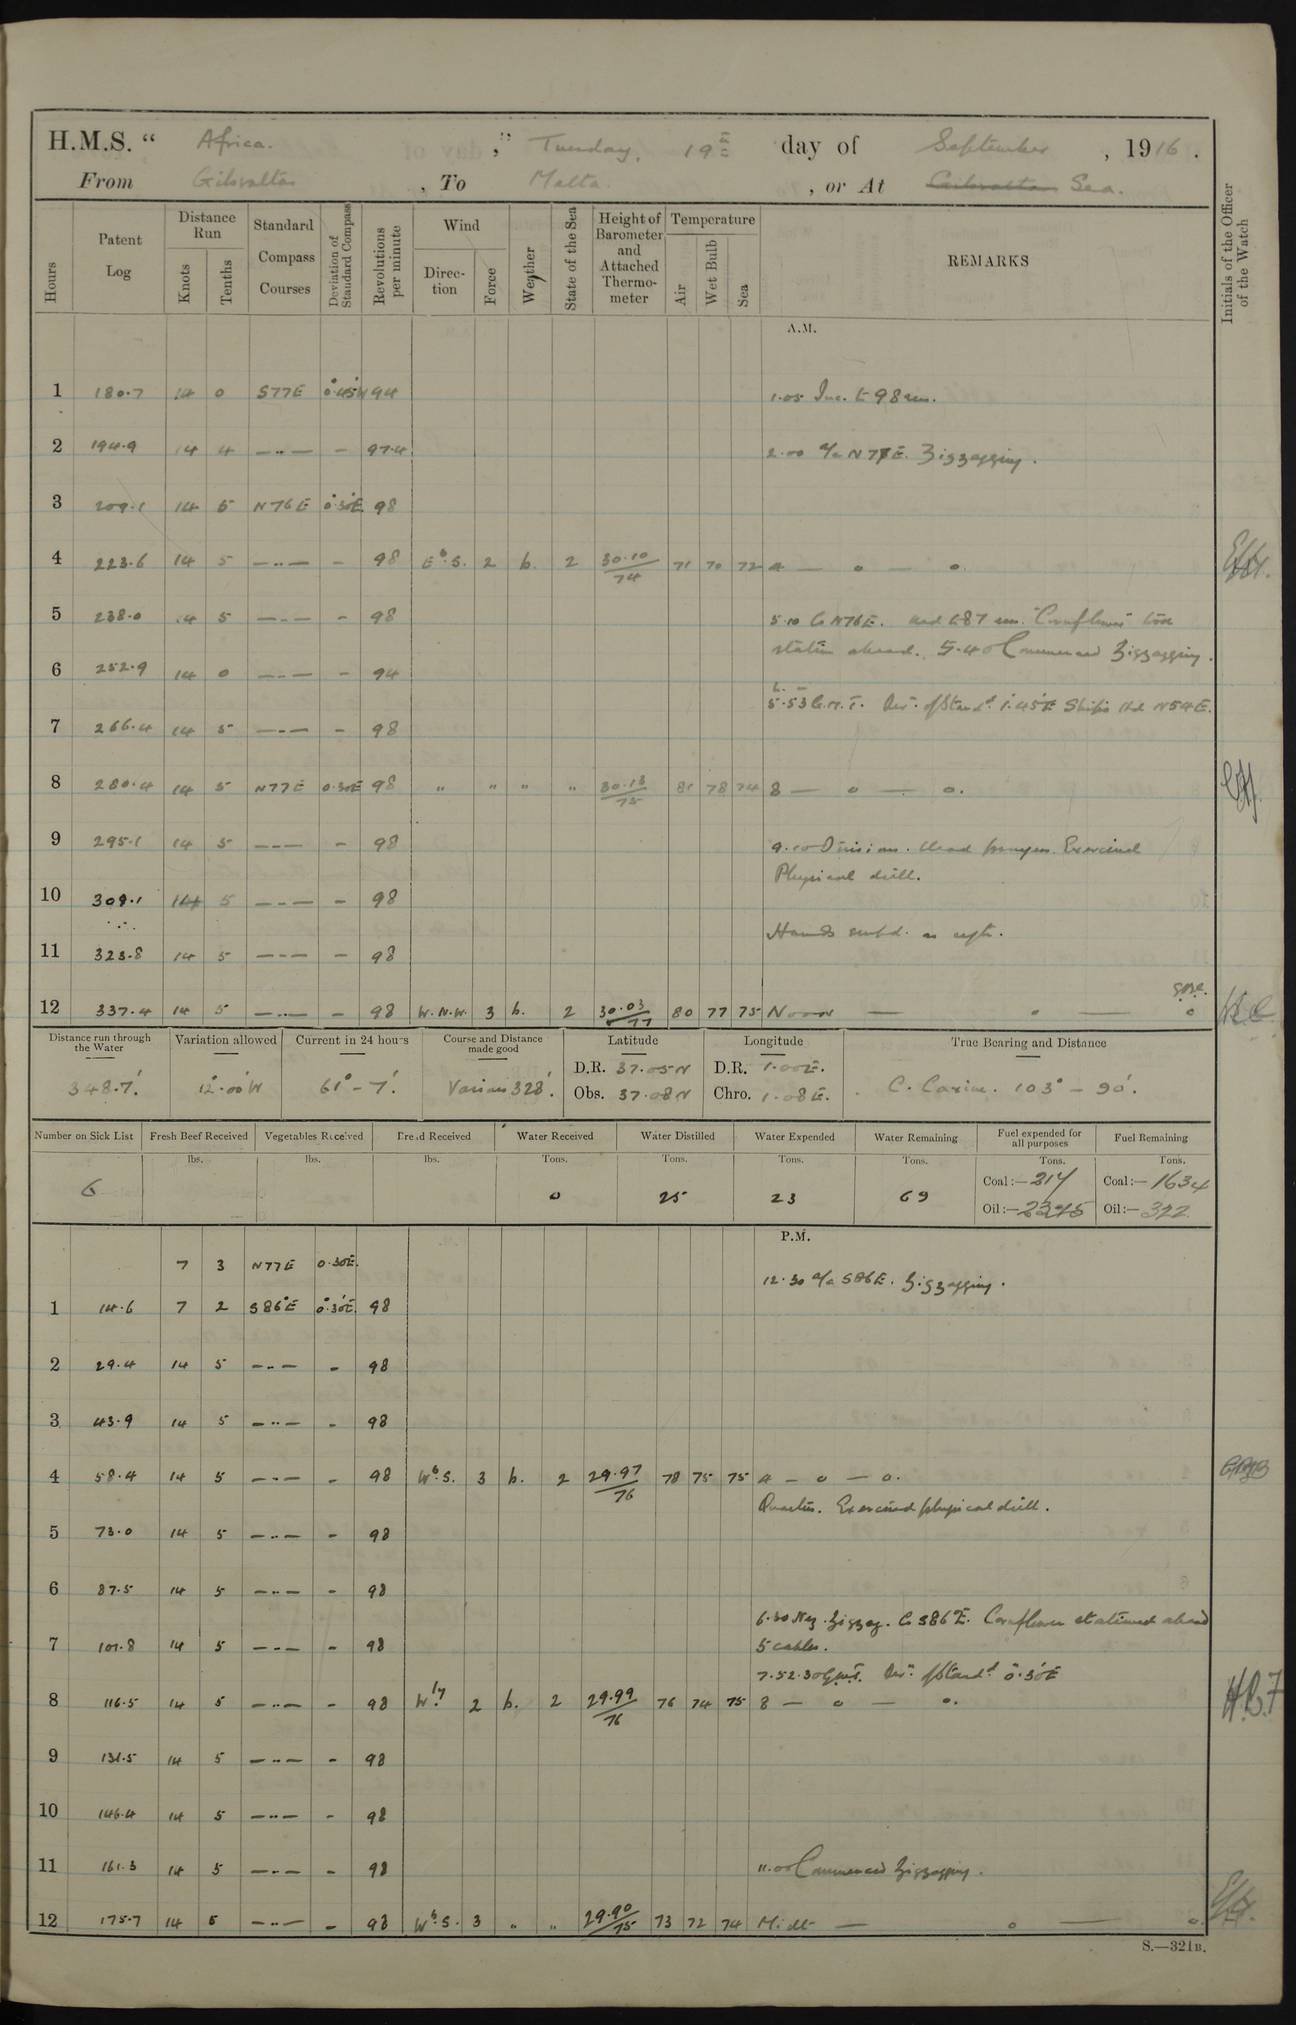 H.M.S. “ Africa. ,” Tuesday, 19th day of September , 1916 .
From Gibraltar , To Malta. , or At Gibraltar Sea.
Hours
Patent Log
Distance Run
Knots
Tenths
Standard Compass Courses
Deviation of Standard Compass
Revolutions per minute
Wind
Direction
Force
Weather
State of the Sea
Height of Barometer and Attached Thermometer
Temperature
Air
Wet Bulb
Sea
REMARKS
Initials of the Officer of the Watch
A.M.
1 180.7 14 0 S77E 0°.45'W 94 1.05 Inc. to 98 revs.
2 194.9 14 4 —··— — 97.4 2.00 a/c N77E. Zigzagging.
3 209.1 14 5 N76E 0°.30'E 98
4 223.6 14 5 —··— — 98 EbS. 2 b. 2 30.10/74 71 70 72 4 — o — o.
5 238.0 14 5 —··— — 98 5.10 Co N76E. red to 87 rev. "Cornflower" took
station ahead. 5.40 Commenced Zigzagging.
6 252.9 14 0 —··— — 94
5.53 G.M.T. Dev. of Stand. 1°.45'E Ships Hd N54E.
7 266.4 14 5 —··— — 98
8 280.4 14 5 N77E 0.30E 98 " " " " 30.13/75 81 78 74 8 — o — o.
9 295.1 14 5 —··— — 98 9.10 Divisions. Read prayers. Exercised
Physical drill.
10 309.1 14 5 —··— — 98
Hands empd. as reqte.
11 323.8 14 5 —··— — 98
12 337.4 14 5 —··— — 98 W.N.W. 3 b. 2 30.03/77 80 77 75 Noon — o — o
Distance run through the Water
348.7'.
Variation allowed
12°.00'W
Current in 24 hours
61° - 7'.
Course and Distance made good
Various 328'.
Latitude
D.R. 37.05N
Obs. 37.08N
Longitude
D.R. 1.00E.
Chro. 1.08E.
True Bearing and Distance
C. Caxine. 103° - 90'.
Number on Sick List
6
Fresh Beef Received
lbs.
Vegetables Received
lbs.
Bread Received
lbs.
Water Received
Tons.
0
Water Distilled
Tons.
25
Water Expended
Tons.
23
Water Remaining
Tons.
69
Fuel expended for all purposes
Tons.
Coal:— 217
Oil:—
Fuel Remaining
Tons.
Coal:— 1634
Oil:— 322
P.M.
7 3 N77E 0.30E.
12.30 a/c S86E. Zigzagging.
1 14.6 7 2 S86°E 0°.30'E. 98
2 29.4 14 5 —··— — 98
3 43.9 14 5 —··— — 98
4 58.4 14 5 —··— — 98 WbS. 3 b. 2 29.97/76 78 75 75 4 — o — o.
Quarters. Exercised physical drill.
5 73.0 14 5 —··— — 98
6 87.5 14 5 —··— — 98
6.30 Neg. Zigzag. Co S86°E. Cornflower stationed ahead
7 101.8 14 5 —··— — 98 5 cables.
7.52.30 G.M.T. Dev. of Stand. 0°.30'E
8 116.5 14 5 —··— — 98 Wly. 2 b. 2 29.99/76 76 74 75 8 — o — o.
H.B.F
9 131.5 14 5 —··— — 98
10 146.4 14 5 —··— — 98
11 161.3 14 5 —··— — 98 11.00 Commenced Zigzagging.
12 175.7 14 5 —··— — 98 WbS. 3 " " 29.90/75 73 72 74 Midt — o — o.
S.—321B.